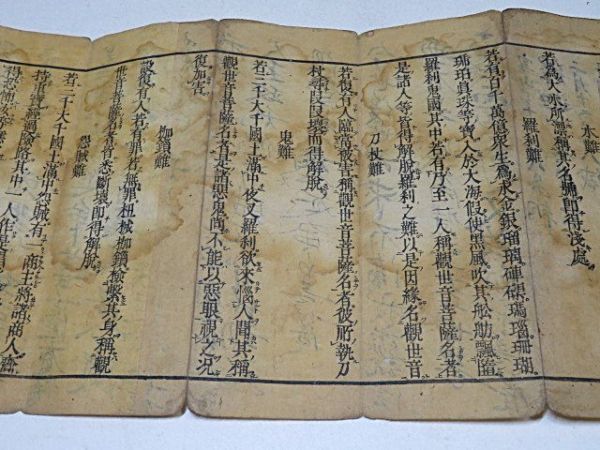 水難
若為大水所漂稱其名號即得淺處
羅刹難
若有百千萬億衆生為求金銀瑠璃硨磲瑪瑙珊瑚
琥珀真珠等寳入於大海假使黒風吹其舩舫飄墮
羅刹鬼國其中若有乃至一人稱觀世音菩薩名者
是諸人等皆得解脱羅刹之難以是因縁名觀世音
刀杖難
若復有人臨當被害稱觀世音菩薩名者彼所執刀
杖尋段段壞而得解脱
鬼難
若三千大千國土滿中夜叉羅刹欲來惱人聞其稱
觀世音菩薩名者是諸惡鬼尚不能以惡眼視之況
復加害
枷鎖難
設復有人若有罪若無罪杻械枷鎖檢繫其身稱觀
世音菩薩名者皆悉斷壞即得解脱
怨賊難
若三千大千國土滿中怨賊有一商主將諸商人齎
持重寳經過險路其中一人作是唱